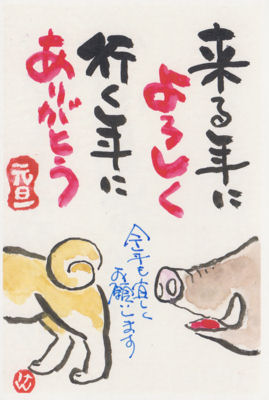 来る年に
よろしく
行く年に
ありがとう
元旦
今年も宜しく
お願いします